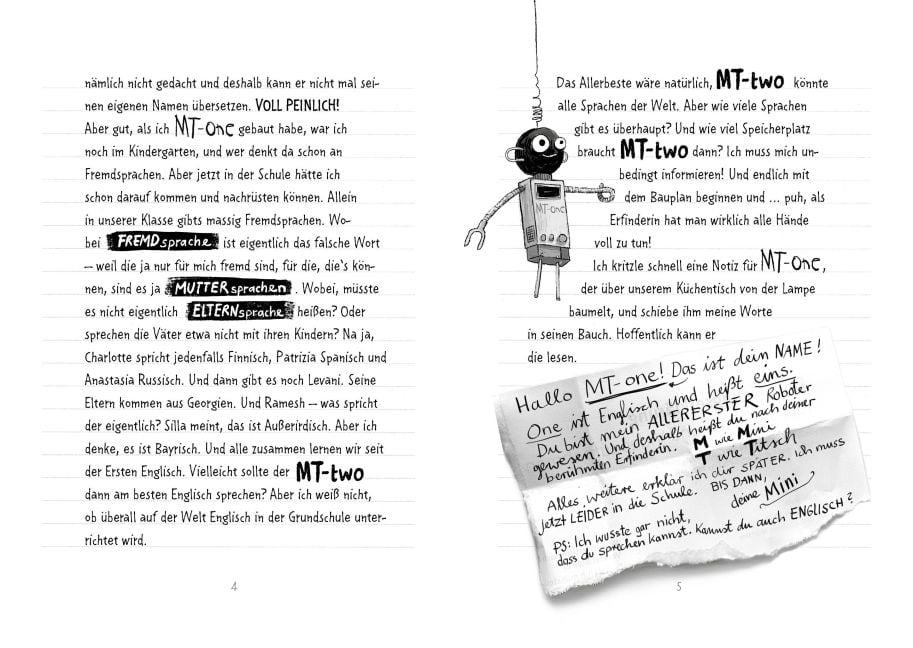 nämlich nicht gedacht und deshalb kann er nicht mal sei-
nen eigenen Namen übersetzen. VOLL PEINLICH!
Aber gut, als ich MT-one gebaut habe, war ich
noch im Kindergarten, und wer denkt da schon an
Fremdsprachen. Aber jetzt in der Schule hätte ich
schon darauf kommen und nachrüsten können. Allein
in unserer Klasse gibts massig Fremdsprachen. Wo-
bei FREMDsprache ist eigentlich das falsche Wort
– weil die ja nur für mich fremd sind, für die, die's kön-
nen, sind es ja MUTTERsprachen. Wobei, müsste
es nicht eigentlich ELTERNsprache heißen? Oder
sprechen die Väter etwa nicht mit ihren Kindern? Na ja,
Charlotte spricht jedenfalls Finnisch, Patrizia Spanisch und
Anastasia Russisch. Und dann gibt es noch Levani. Seine
Eltern kommen aus Georgien. Und Ramesh – was spricht
der eigentlich? Silla meint, das ist Außerirdisch. Aber ich
denke, es ist Bayrisch. Und alle zusammen lernen wir seit
der Ersten Englisch. Vielleicht sollte der MT-two
dann am besten Englisch sprechen? Aber ich weiß nicht,
ob überall auf der Welt Englisch in der Grundschule unter-
richtet wird.
4
Das Allerbeste wäre natürlich, MT-two könnte
alle Sprachen der Welt. Aber wie viele Sprachen
gibt es überhaupt? Und wie viel Speicherplatz
braucht MT-two dann? Ich muss mich un-
bedingt informieren! Und endlich mit
dem Bauplan beginnen und ... puh, als
Erfinderin hat man wirklich alle Hände
voll zu tun!
MT-one
Ich kritzle schnell eine Notiz für MT-one,
der über unserem Küchentisch von der Lampe
baumelt, und schiebe ihm meine Worte
in seinen Bauch. Hoffentlich kann er
die lesen.
Hallo MT-one! Das ist dein NAME!
One ist Englisch und heißt eins.
Du bist mein ALLERERSTER Roboter
gewesen. Und deshalb heißt du nach deiner
berühmten Erfinderin. M wie Mini
T wie Titsch
Alles weitere erklär ich dir SPÄTER. Ich muss
jetzt LEIDER in die Schule. BIS DANN,
deine Mini
PS: Ich wusste gar nicht,
dass du sprechen kannst. Kannst du auch ENGLISCH?
5